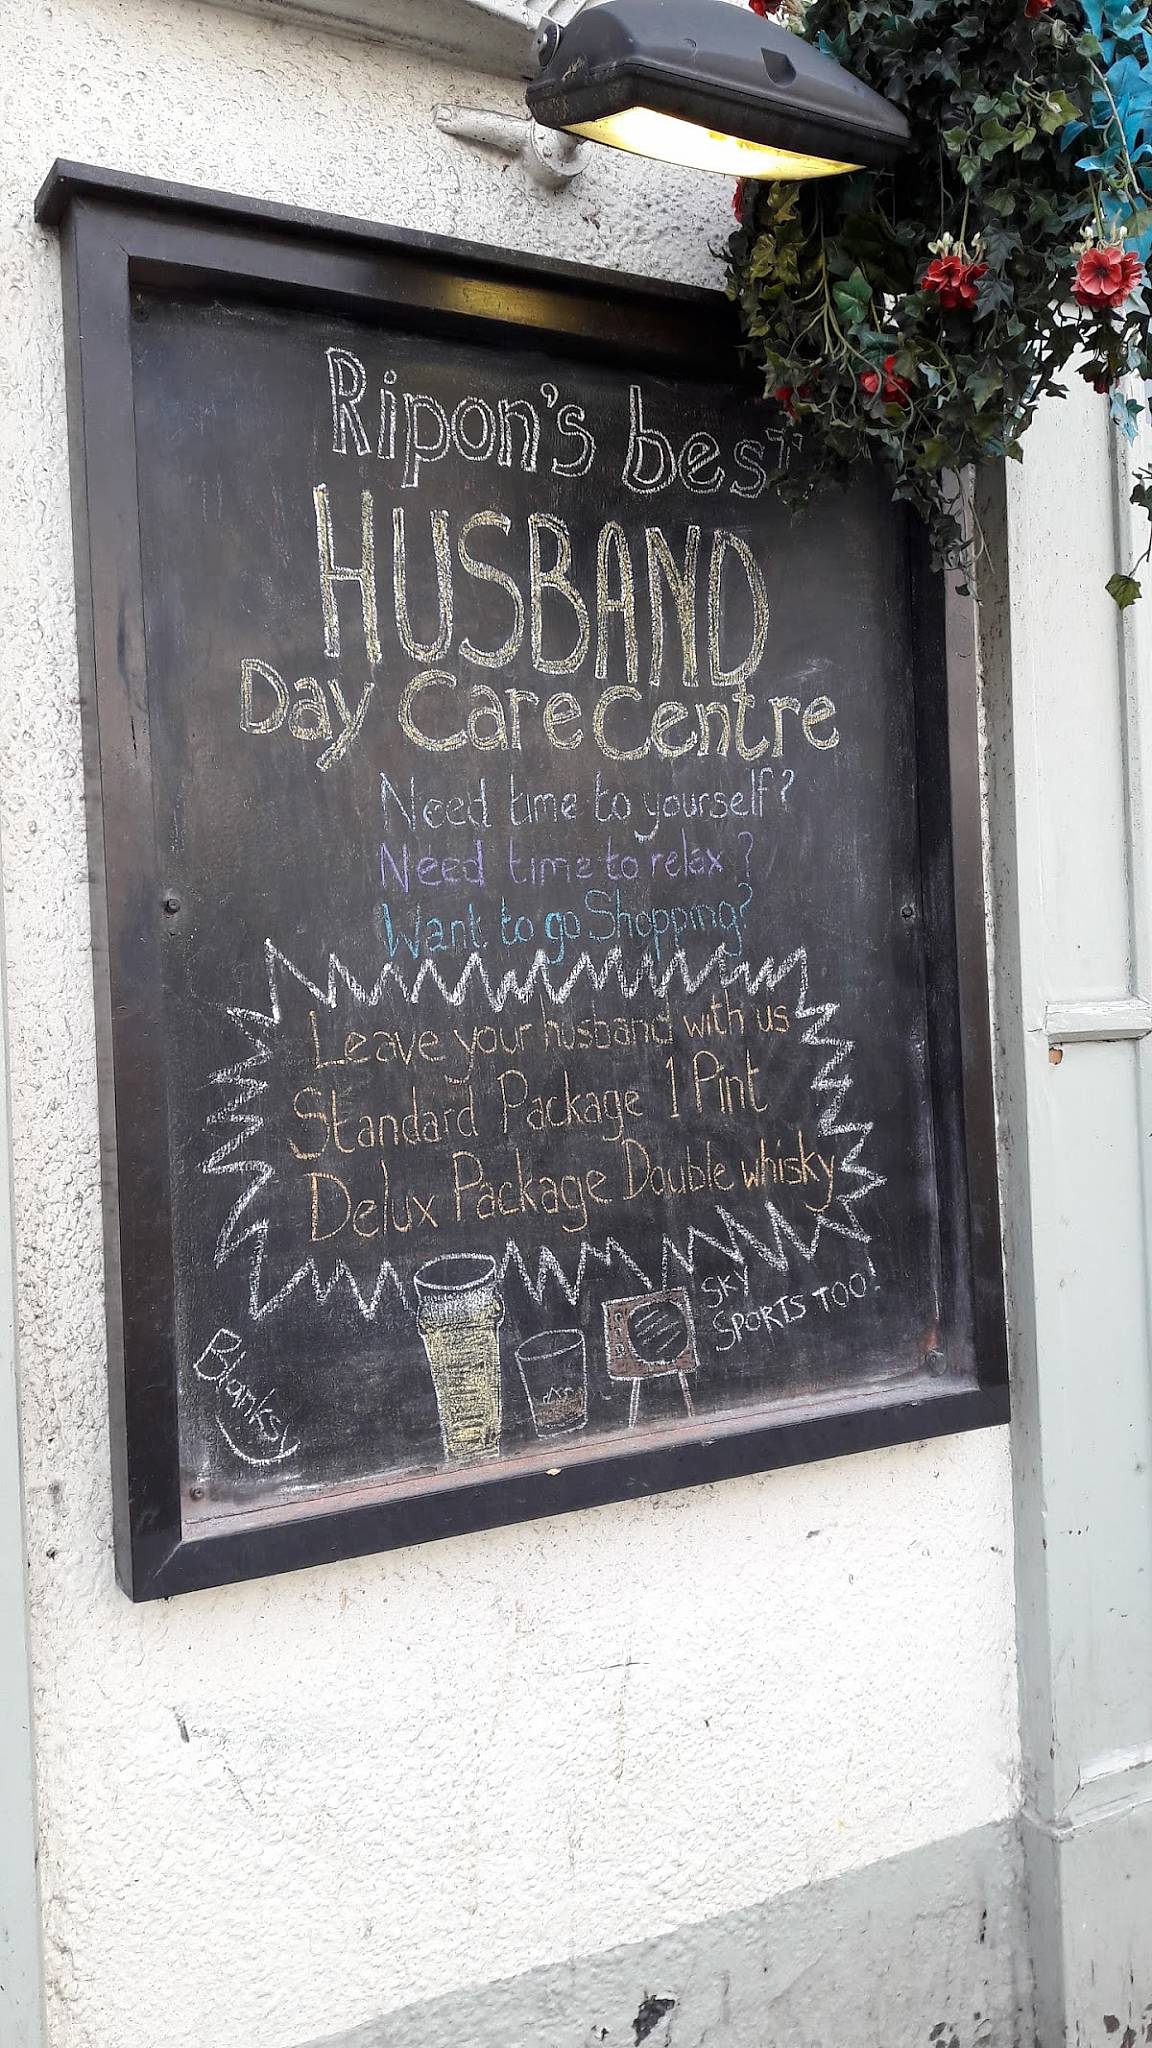 Ripon's best
HUSBAND
Day Care Centre
Need time to yourself?
Need time to relax?
Want to go Shopping?
Leave your husband with us
Standard Package 1 Pint
Delux Package Double whisky
SKY
SPORTS TOO!
Blanksy